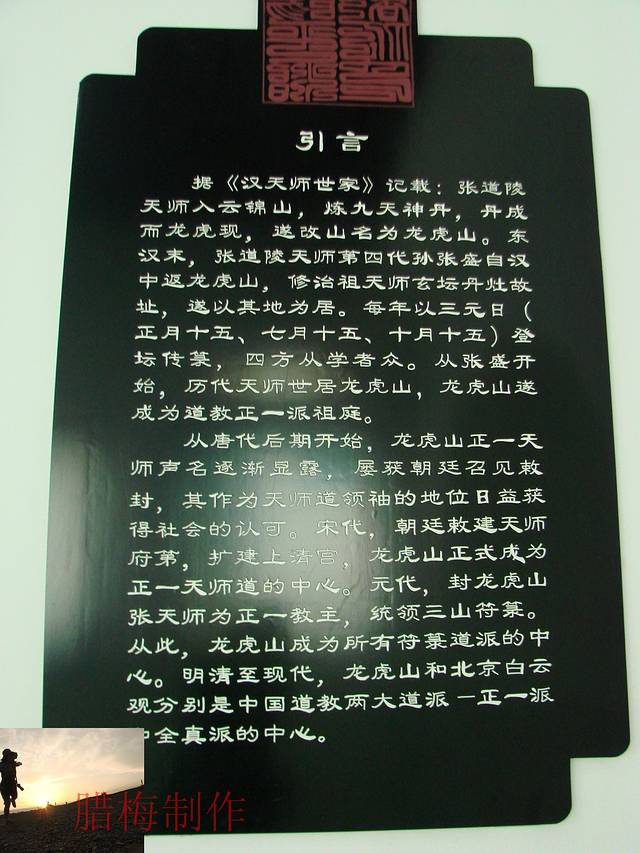 引言
据《汉天师世家》记载：张道陵
天师入云锦山，炼九天神丹，丹成
而龙虎现，遂改山名为龙虎山。东
汉末，张道陵天师第四代孙张盛自汉
中返龙虎山，修治祖天师玄坛丹灶故
址，遂以其地为居。每年以三元日（
正月十五、七月十五、十月十五）登
坛传箓，四方从学者众。从张盛开
始，历代天师世居龙虎山，龙虎山遂
成为道教正一派祖庭。
从唐代后期开始，龙虎山正一天
师声名逐渐显露，屡获朝廷召见敕
封，其作为天师道领袖的地位日益获
得社会的认可。宋代，朝廷敕建天师
府第，扩建上清宫，龙虎山正式成为
正一天师道的中心。元代，封龙虎山
张天师为正一教主，统领三山符箓。
从此，龙虎山成为所有符箓道派的中
心。明清至现代，龙虎山和北京白云
观分别是中国道教两大道派—正一派
全真派的中心。
腊梅制作